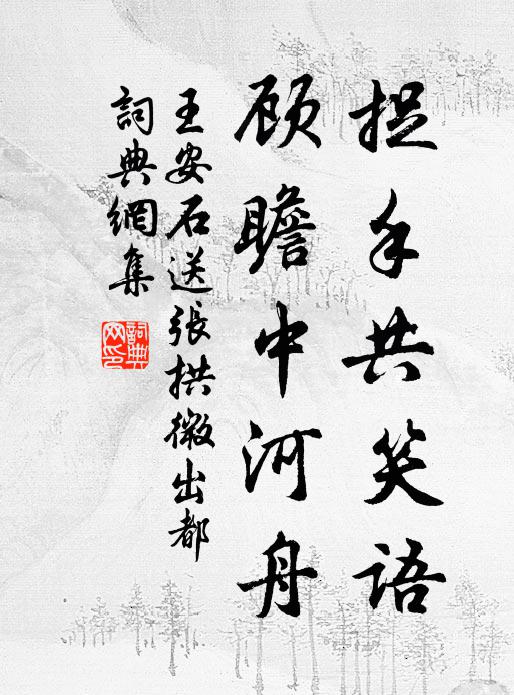 捉手共笑語
顾瞻中河舟
王安石送張拱微出都
詞典網集
詞典网印